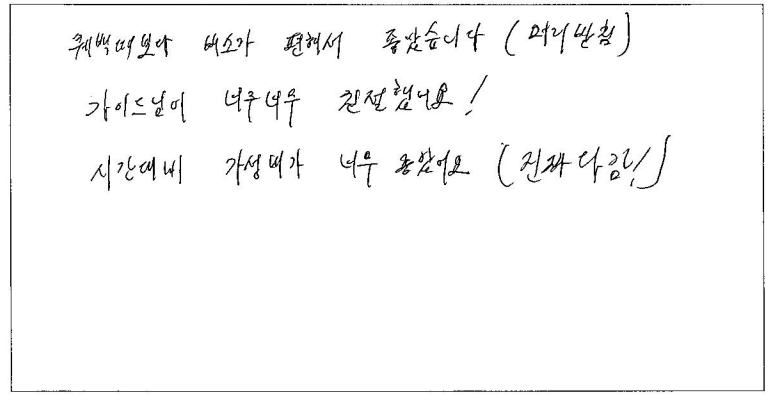 퀘백때보다 버스가 편해서 좋았습니다 (머리받침)
가이드님이 너무너무 친절했어요!
시간대비 가성비가 너무 좋았어요 (진짜 다금!)